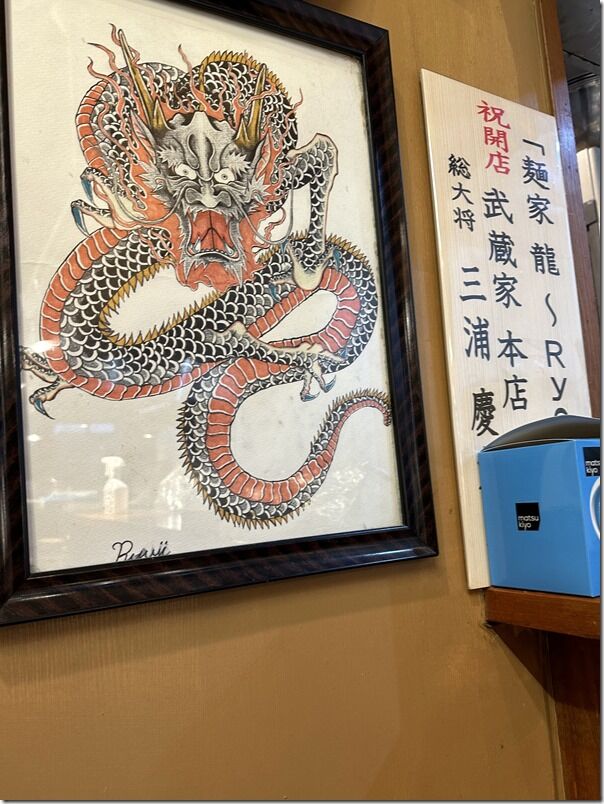 祝開店
「麺家 龍 ~ Ry
武蔵家 本店
総大将 三浦 慶
matsu
kiyo
matsu
kiyo